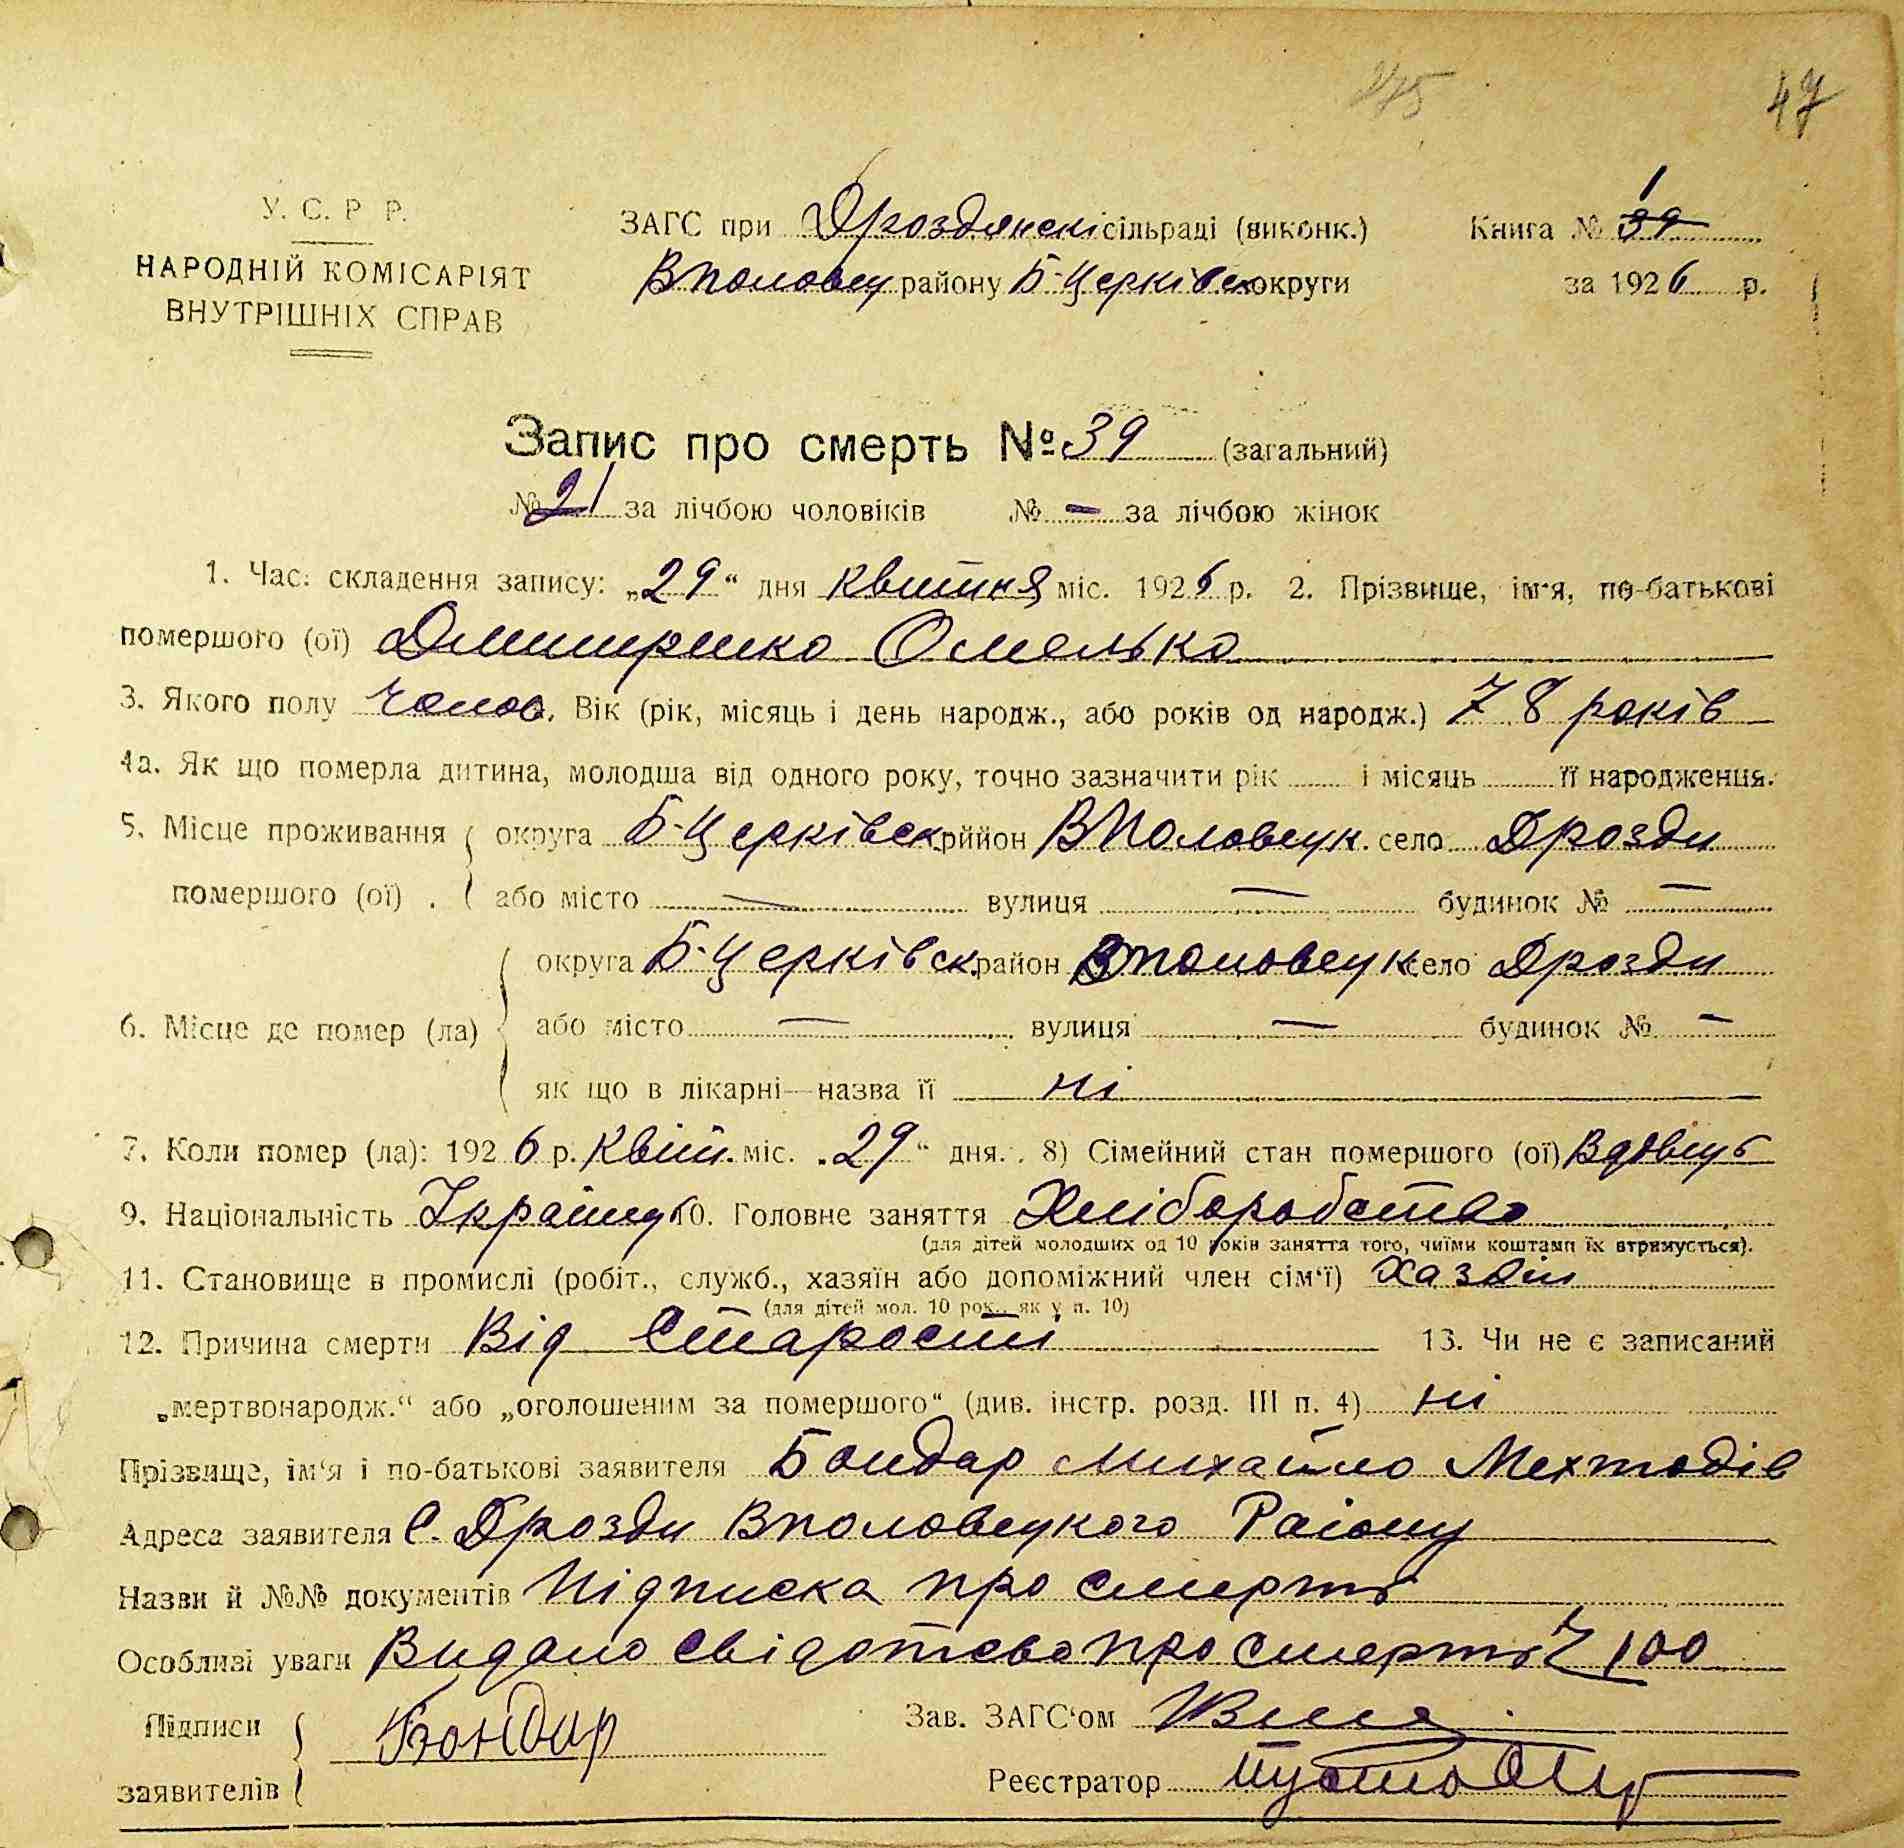 275
47
У. С. Р. Р.
НАРОДНІЙ КОМІСАРІЯТ
ВНУТРІШНІХ СПРАВ
ЗАГС при Дроздянскі сільраді (виконк.)
Вполовец району Б-Церківск округи
Книга № 39 1
за 1926 р.
Запис про смерть № 39 (загальний)
№ 21 за лічбою чоловіків № — за лічбою жінок
1. Час складення запису: „29“ дня квітня міс. 1926 р. 2. Прізвище, ім'я, по-батькові
помершого (ої) Дмитренко Омелько
3. Якого полу чолов. Вік (рік, місяць і день народж., або років од народж.) 78 років
4а. Як що померла дитина, молодша від одного року, точно зазначити рік і місяць її народження.
5. Місце проживання округа Б-Церківск. рййон ВПоловецк. село Дрозди
помершого (ої) . або місто — вулиця — будинок № —
округа Б-Церківск. район Вполовецк село Дрозди
6. Місце де помер (ла) або місто — вулиця — будинок № —
як що в лікарні—назва її ні
7. Коли помер (ла): 1926 р. Квіт. міс. „29“ дня. 8) Сімейний стан помершого (ої) Вдовець
9. Національність Українець 10. Головне заняття Хліборобство
(для дітей молодших од 10 років заняття того, чиїми коштами їх втримується).
11. Становище в промислі (робіт., служб., хазяїн або допоміжний член сім'ї) Хазяїн
(для дітей мол. 10 рок., як у п. 10)
12. Причина смерти Від Старости 13. Чи не є записаний
„мертвонародж.“ або „оголошеним за помершого“ (див. інстр. розд. III п. 4) ні
Прізвище, ім'я і по-батькові заявителя Бондар Михайло Мехтодів
Адреса заявителя С. Дрозди Вполовецкого Раіону
Назви й №№ документів Підписка про смерть
Особливі уваги Видано свідотсво про смерть № 100
Підписи Бондар Зав. ЗАГС'ом
заявителів Реєстратор